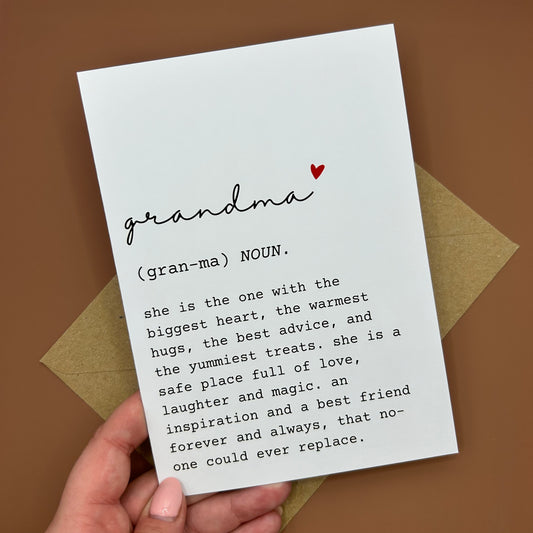 grandma
(gran-ma) NOUN.
she is the one with the
biggest heart, the warmest
hugs, the best advice, and
the yummiest treats. she is a
safe place full of love,
laughter and magic. an
inspiration and a best friend
forever and always, that no-
one could ever replace.